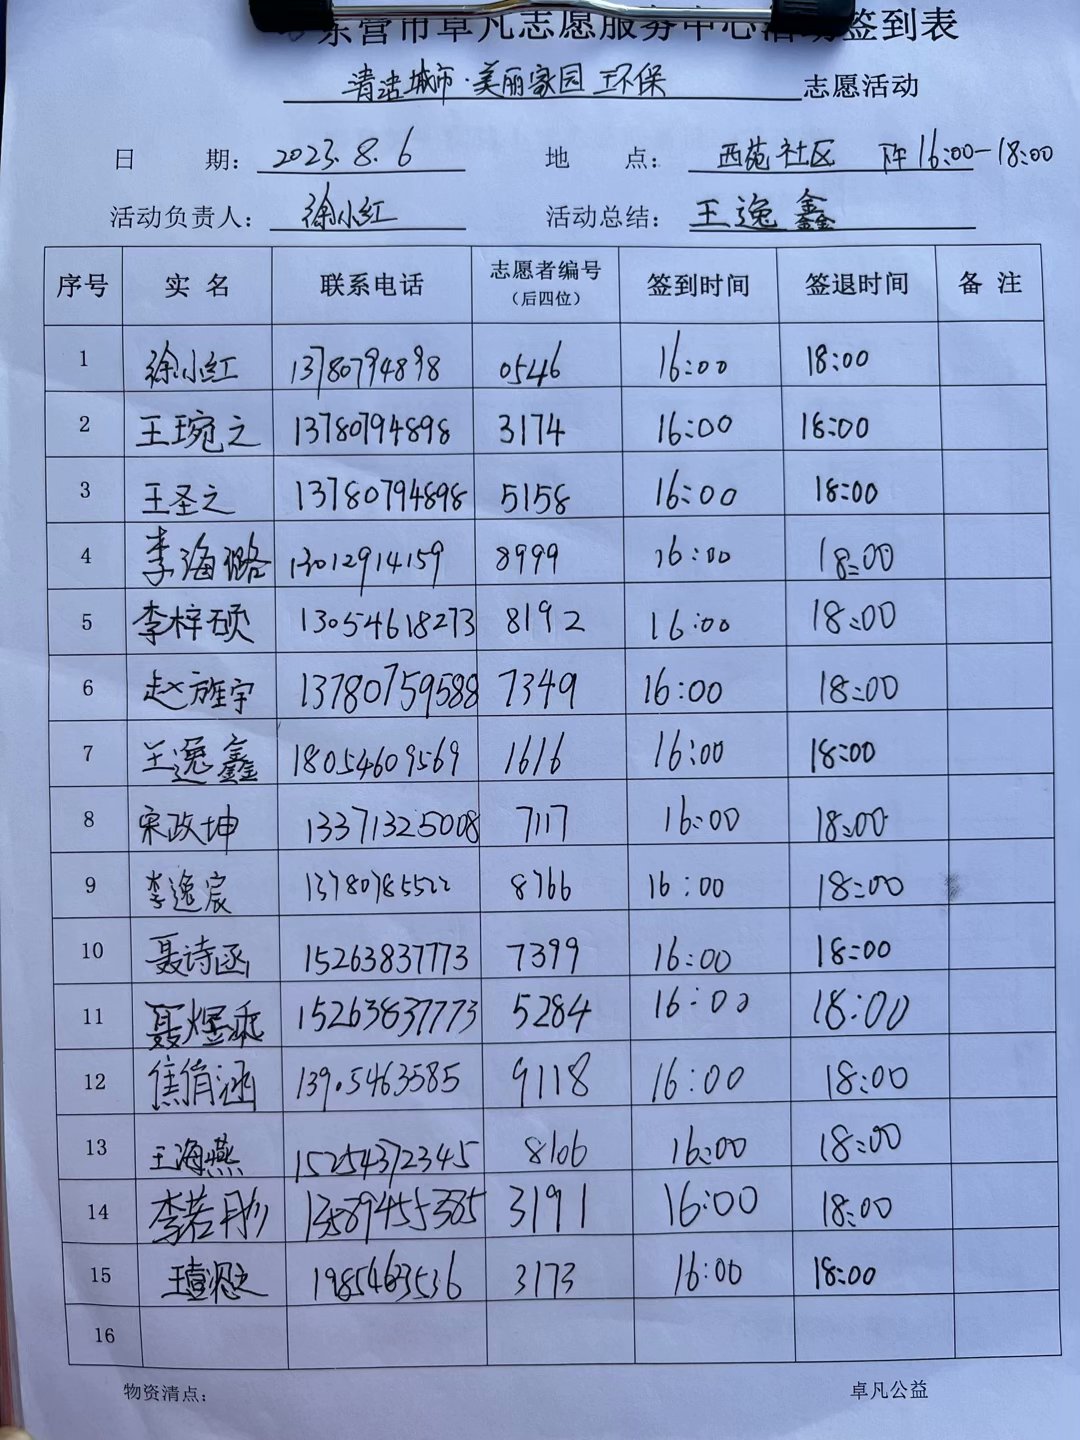 东营市卓凡志愿服务中心活动签到表
清洁城市·美丽家园 环保 志愿活动
日 期: 2023.8.6 地 点: 西苑社区 下午16:00-18:00
活动负责人: 徐小红 活动总结: 王逸鑫
序号 实名 联系电话 志愿者编号（后四位） 签到时间 签退时间 备注
1 徐小红 13780794898 0546 16:00 18:00
2 王琬之 13780794898 3174 16:00 18:00
3 王圣之 13780794898 5158 16:00 18:00
4 李海璐 13012914159 8999 16:00 18:00
5 李梓硕 13054618273 8192 16:00 18:00
6 赵旌宇 13780759588 7349 16:00 18:00
7 王逸鑫 18054609569 1616 16:00 18:00
8 宋政坤 13371325008 7117 16:00 18:00
9 李逸宸 13780785522 8766 16:00 18:00
10 聂诗函 15263837773 7399 16:00 18:00
11 聂煜 15263837773 5284 16:00 18:00
12 焦俏涵 13905463585 9118 16:00 18:00
13 王海燕 15254372345 8106 16:00 18:00
14 李若彤 13589455385 3191 16:00 18:00
15 19854663536 3173 16:00 18:00
16
物资清点: 卓凡公益